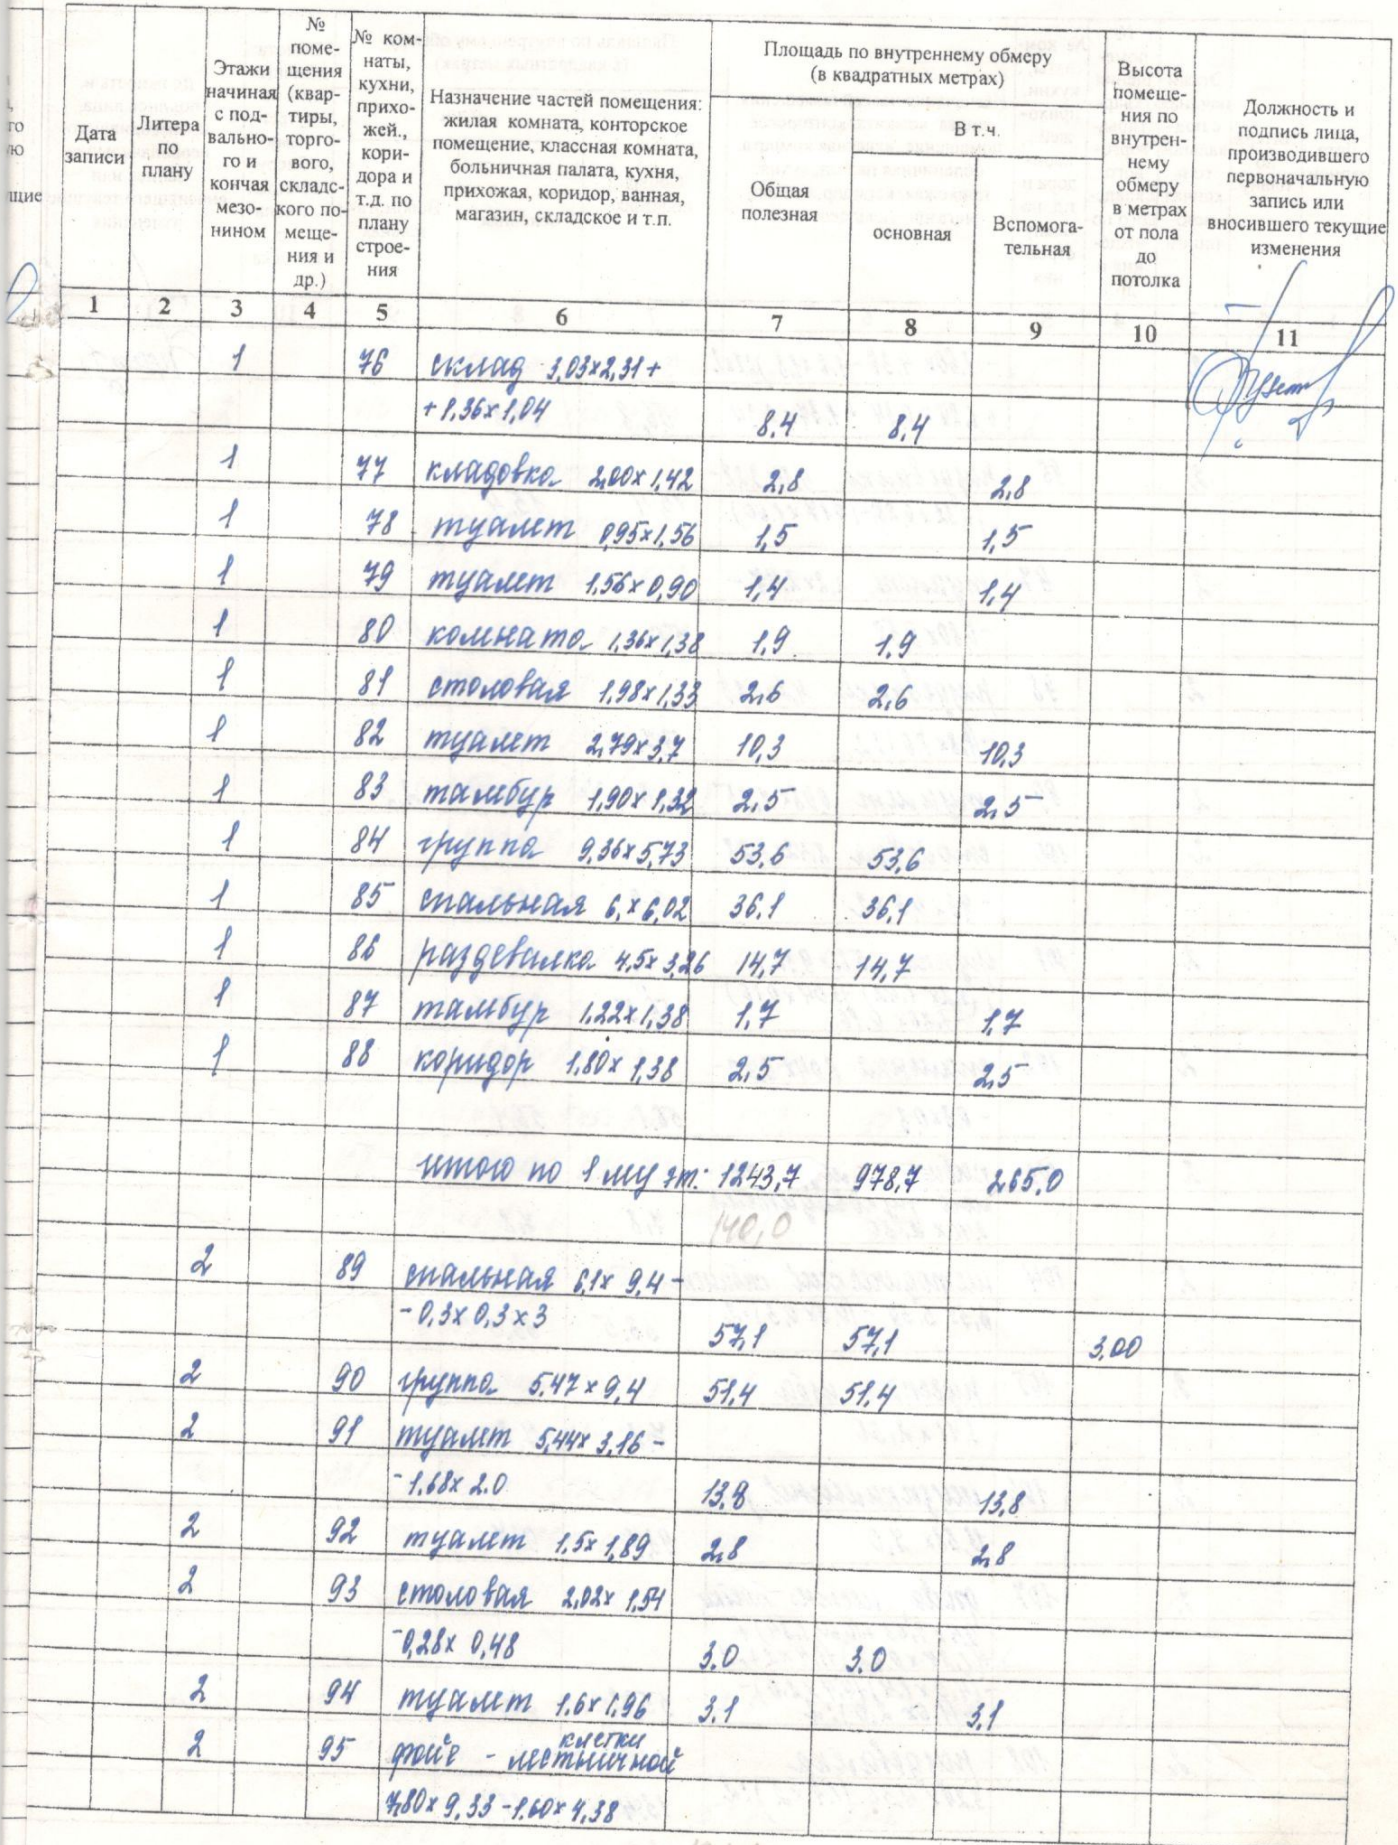 Дата записи | Литера по плану | Этажи начиная с под-вально-го и кончая мезо-нином | № поме-щения (квар-тиры, торго-вого, складс-кого по-меще-ния и др.) | № ком-наты, кухни, прихо-жей., кори-дора и т.д. по плану строе-ния | Назначение частей помещения: жилая комната, конторское помещение, классная комната, больничная палата, кухня, прихожая, коридор, ванная, магазин, складское и т.п. | Площадь по внутреннему обмеру (в квадратных метрах) | Общая полезная | В т.ч. | основная | Вспомога-тельная | Высота помеще-ния по внутрен-нему обмеру в метрах от пола до потолка | Должность и подпись лица, производившего первоначальную запись или вносившего текущие изменения
1 2 3 4 5 6 7 8 9 10 11
1 76 склад 3,03х2,31+
+1,36х1,04 8,4 8,4
1 77 кладовка 2,00х1,42 2,8 2,8
1 78 туалет 0,95х1,56 1,5 1,5
1 79 туалет 1,56х0,90 1,4 1,4
1 80 комната 1,36х1,38 1,9 1,9
1 81 столовая 1,98х1,33 2,6 2,6
1 82 туалет 2,79х3,7 10,3 10,3
1 83 тамбур 1,90х1,32 2,5 2,5
1 84 группа 9,36х5,73 53,6 53,6
1 85 спальная 6,х6,02 36,1 36,1
1 86 раздевалка 4,5х3,26 14,7 14,7
1 87 тамбур 1,22х1,38 1,7 1,7
1 88 коридор 1,80х1,38 2,5 2,5
итого по 1 му эт: 1243,7 978,7 265,0
140,0
2 89 спальная 6,1х9,4-
-0,3х0,3х3 57,1 57,1 3,00
2 90 группа 5,47х9,4 51,4 51,4
2 91 туалет 5,44х3,16-
-1.68х2.0 13,8 13,8
2 92 туалет 1,5х1,89 2,8 2,8
2 93 столовая 2,02х1,54
-0,28х0,48 3.0 3.0
2 94 туалет 1.6х1,96 3.1 3,1
2 95 фойе - лестничной клетки
7,80х9,33-1.60х4,38